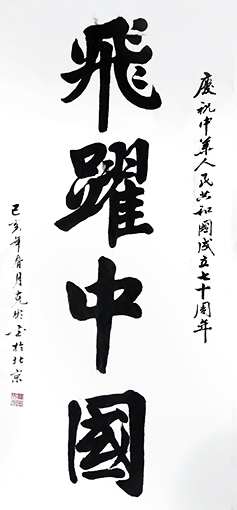 慶祝中華人民共和國成立七十周年
飛躍中國
己亥年
於北京